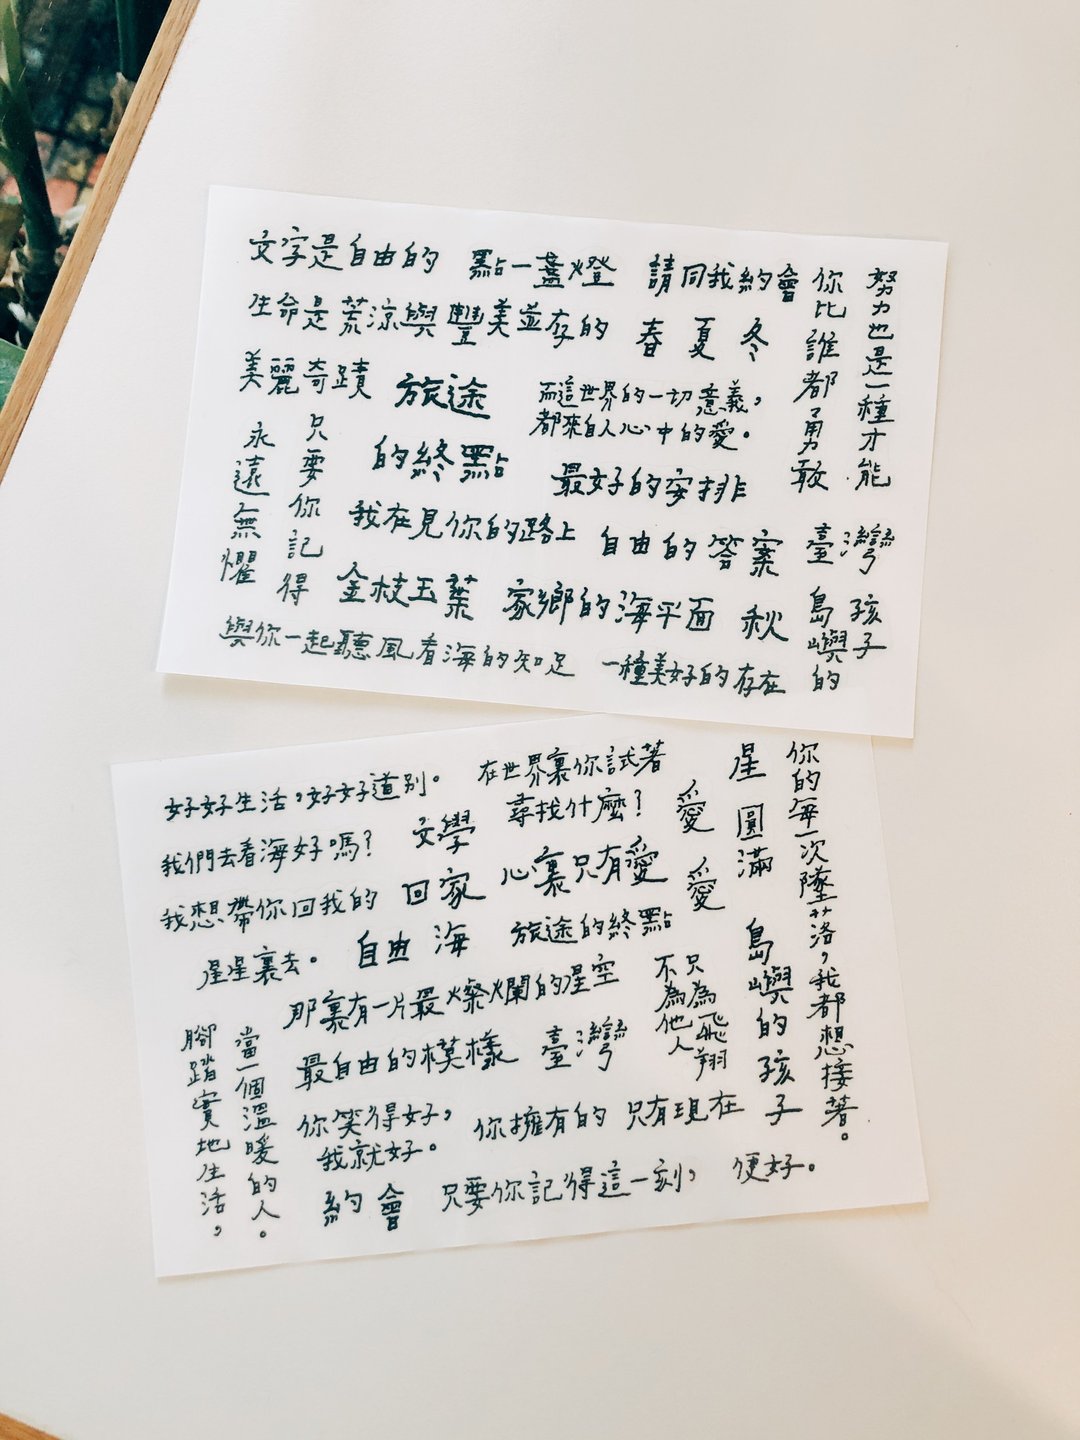 文字是自由的
點一盞燈
請同我約會
你比誰都勇敢
努力也是一種才能
生命是荒涼與豐美並存的
美麗奇蹟
春 夏 冬
旅途
的終點
而這世界的一切意義,
都來自人心中的愛。
最好的安排
只要你記得
永遠無懼
我在見你的路上
自由的答案
臺灣
島嶼的
孩子
金枝玉葉
家鄉的海平面
秋
與你一起聽風看海的知足
一種美好的存在
好好生活,好好道別。
在世界裏你試著
尋找什麼?
我們去看海好嗎?
文學
愛
愛
星
圓滿
你的每一次墜落,我都想接著。
我想帶你回我的
星星裏去。
回家
心裏只有愛
自由
海
旅途的終點
只為飛翔
不為他人
島嶼的孩子
那裏有一片最燦爛的星空
最自由的模樣
臺灣
當一個溫暖的人。
腳踏實地生活,
你笑得好,
我就好。
你擁有的
只有現在
約會
只要你記得這一刻,
便好。